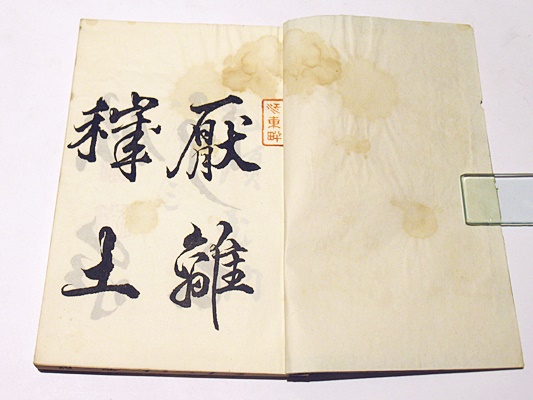 厭離
穢土
東畔